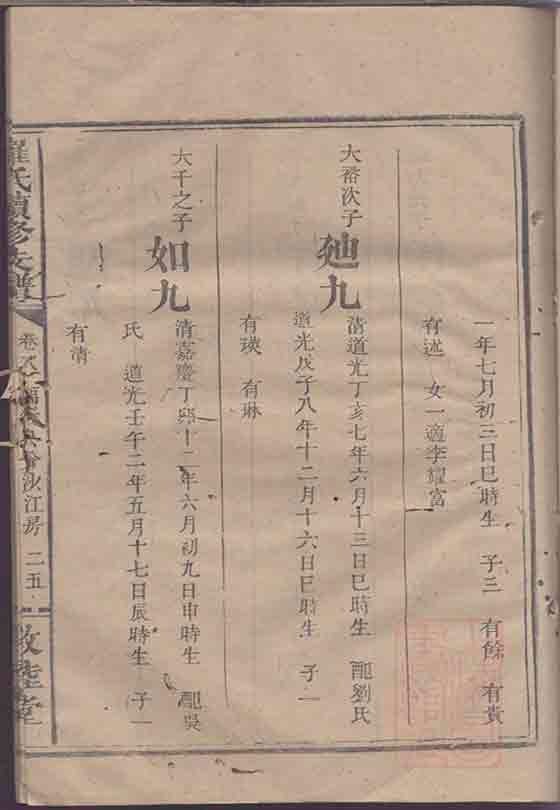 一年七月初三日巳時生 子三 有餘 有貴
有述 女一適李耀富
大裕次子
九
清道光丁亥七年六月十三日巳時生 配劉氏
道光戊子八年十二月十六日巳時生 子一
有瑛 有琳
大千之子
如九
清嘉慶丁卯十二年六月初九日申時生 配吳
氏 道光壬午二年五月十七日辰時生 子一
有清
羅氏續修支譜
卷 沙江房 二五
敦睦堂